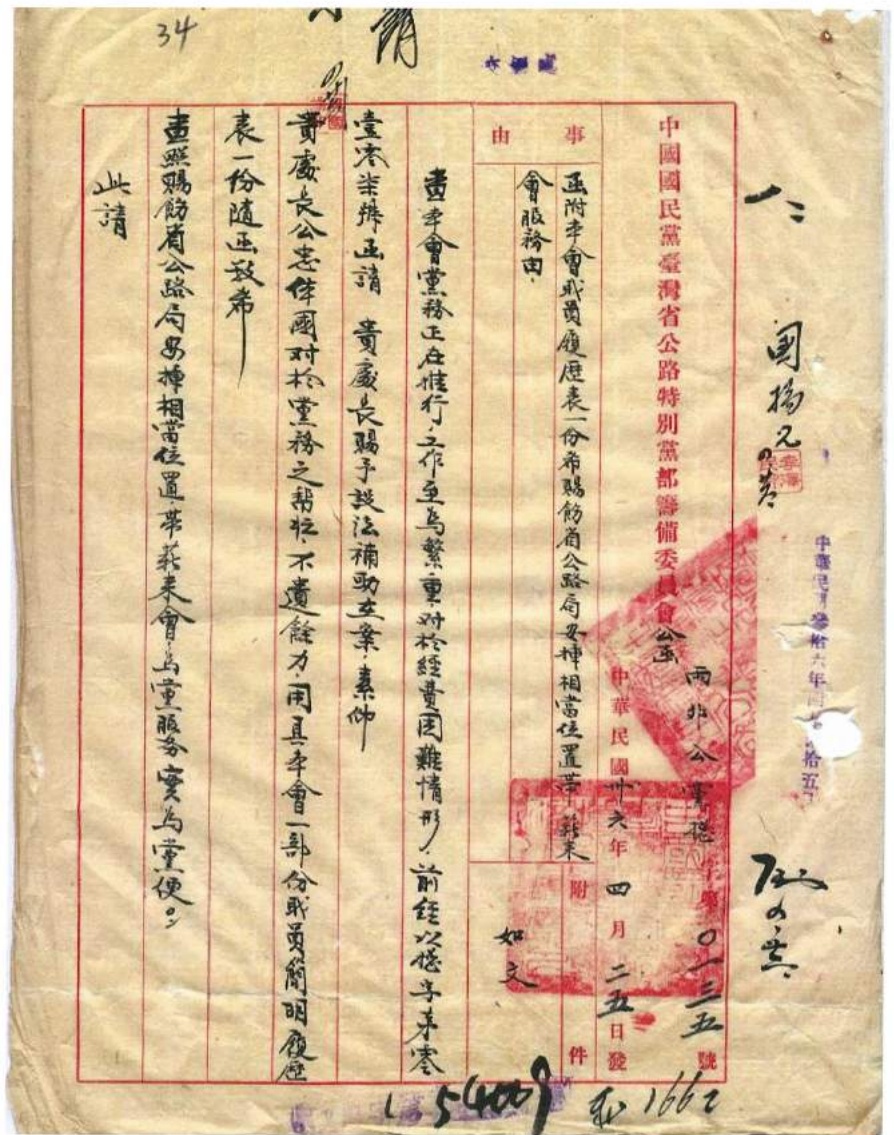 34
中國國民黨臺灣省公路特別黨部籌備委員會公函
兩北公 字第〇一三五號
中華民國卅六年四月二五日發
事由
函附本會職員履歷表一份希賜飭省公路局安插相當位置帶薪來
會服務由
附件
如文
查本會黨務正在推行,工作至為繁重對於經費困難情形,前經以總字第零
壹零柒號函請 貴處長賜予設法補助在案,素仰
貴處長公忠体國對於黨務之幫忙,不遺餘力,用具本會一部份職員簡明履歷
表一份隨函致希
查照賜飭省公路局安插相當位置,帶薪來會為黨服務實為黨便。
此請
中華民國參拾六年
54009
1662